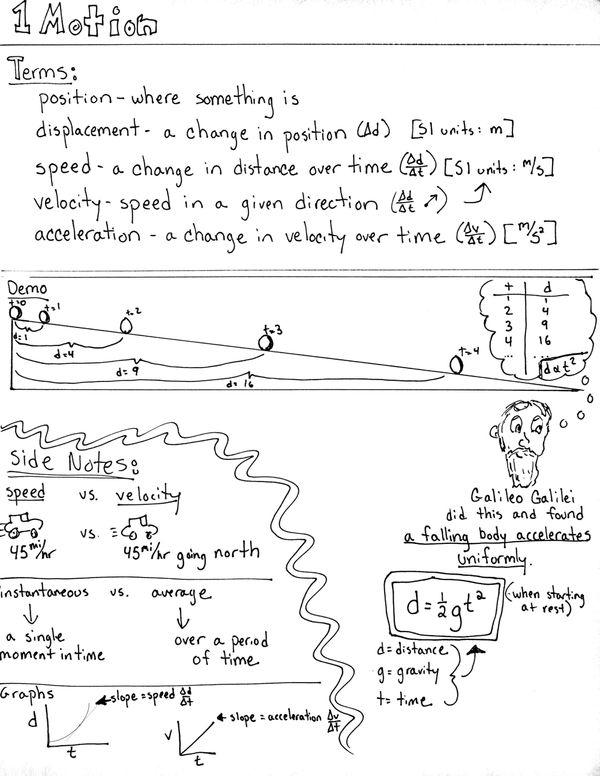 1 Motion
Terms:
position - where something is
displacement - a change in position (Δd) [SI units: m]
speed - a change in distance over time (Δd/Δt) [SI units: m/s]
velocity - speed in a given direction (Δd/Δt ↗)
acceleration - a change in velocity over time (Δv/Δt) [m/s²]
Demo
t=0 t=1 t=2 t=3 t=4
d=1
d=4
d=9
d=16
t d
1 1
2 4
3 9
4 16
... ...
d α t²
Galileo Galilei
did this and found
a falling body accelerates
uniformly.
d = ½gt² (when starting
at rest)
d = distance
g = gravity
t = time
Side Notes:
speed vs. velocity
vs.
45 mi/hr 45 mi/hr going north
instantaneous vs. average
a single over a period
moment in time of time
Graphs
d
t
slope = speed Δd/Δt
v
t
slope = acceleration Δv/Δt